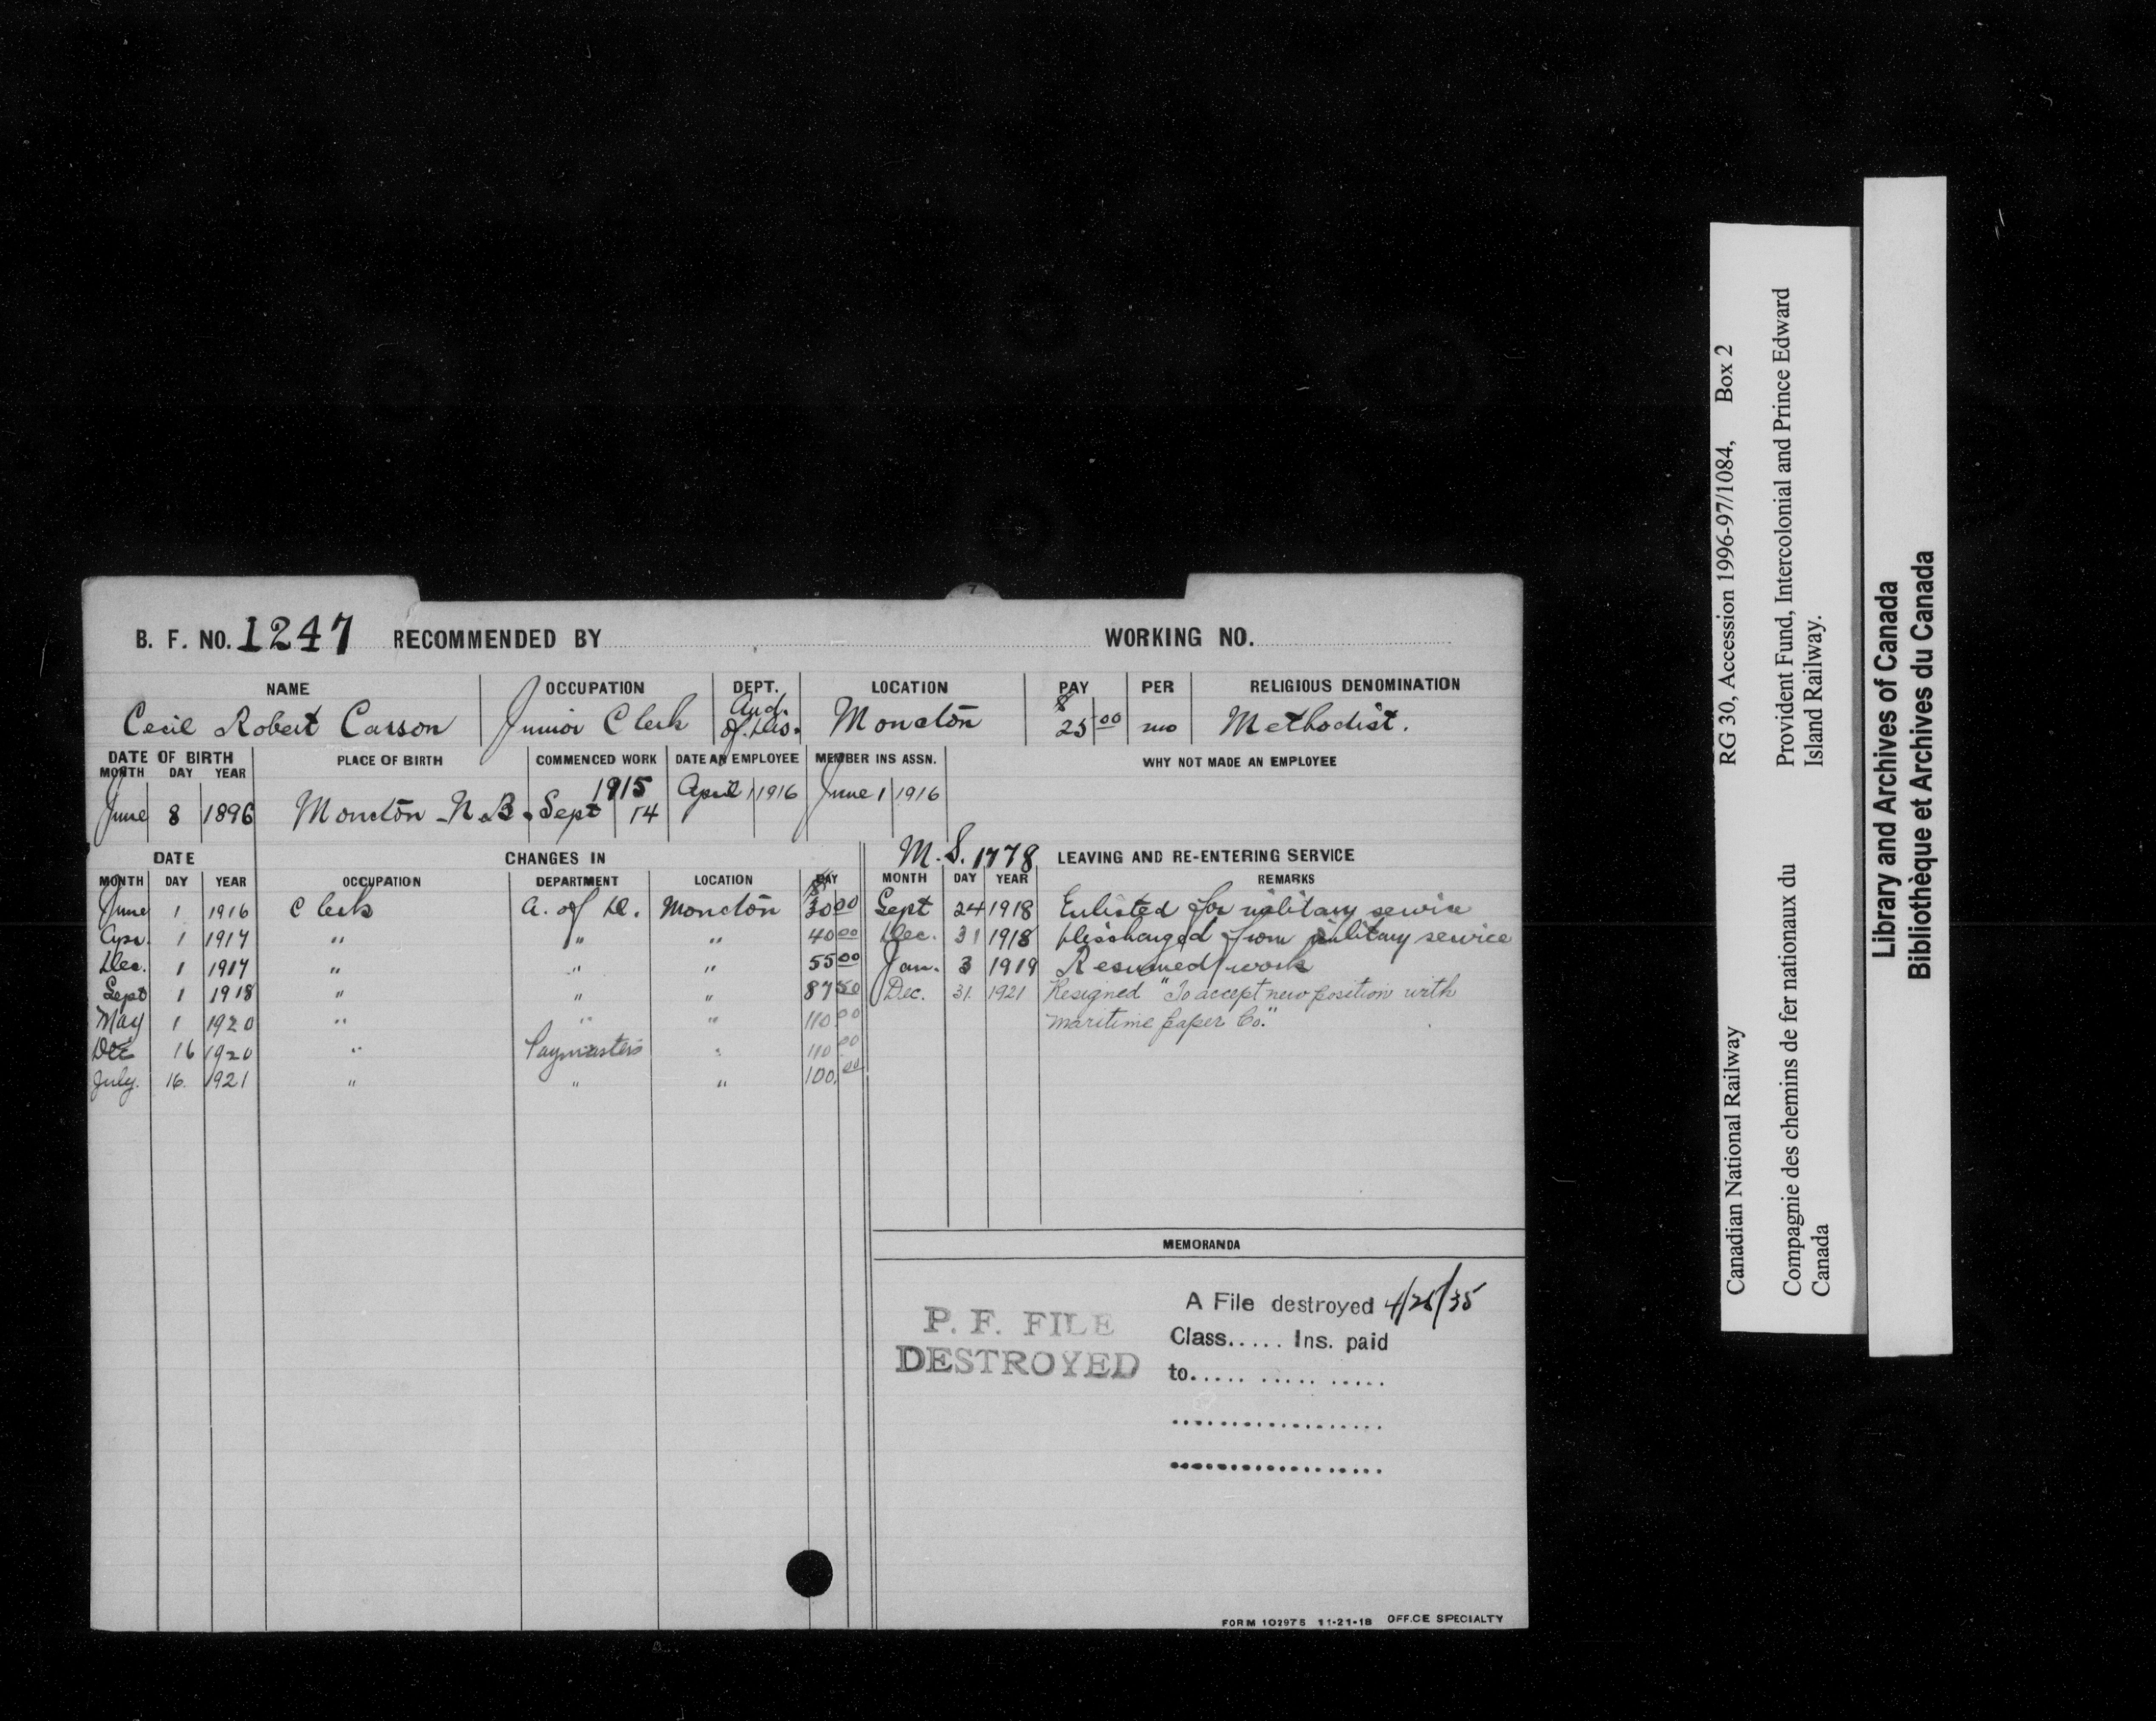 B. F. NO. 1247 RECOMMENDED BY WORKING NO.
NAME OCCUPATION DEPT. LOCATION PAY PER RELIGIOUS DENOMINATION
Cecil Robert Carson Junior Clerk Aud. of Dis. Moncton $ 25 00 mo Methodist.
DATE OF BIRTH PLACE OF BIRTH COMMENCED WORK DATE AN EMPLOYEE MEMBER INS ASSN. WHY NOT MADE AN EMPLOYEE
MONTH DAY YEAR
June 8 1896 Moncton N.B. Sept 14 1915 April 1 1916 June 1 1916
DATE CHANGES IN M.S. 1778 LEAVING AND RE-ENTERING SERVICE
MONTH DAY YEAR OCCUPATION DEPARTMENT LOCATION PAY MONTH DAY YEAR REMARKS
June 1 1916 Clerk A. of D. Moncton $ 30 00 Sept 24 1918 Enlisted for military service
Apr. 1 1917 " " " 40 00 Dec. 31 1918 Discharged from military service
Dec. 1 1917 " " " 55 00 Jan. 3 1919 Resumed work
Sept 1 1918 " " " 87 50 Dec. 31. 1921 Resigned "To accept new position with
May 1 1920 " " " 110 00 Maritime paper Co."
Dec 16 1920 " Paymasters " 110 00
July. 16. 1921 " " " 100. 00
MEMORANDA
P. F. FILE
DESTROYED
A File destroyed 4/25/35
Class..... Ins. paid
to..... ..... .....
...................
...................
FORM 102975 11-21-18 OFFICE SPECIALTY
Canadian National Railway RG 30, Accession 1996-97/1084, Box 2
Compagnie des chemins de fer nationaux du Provident Fund, Intercolonial and Prince Edward
Canada Island Railway.
Library and Archives of Canada
Bibliothèque et Archives du Canada